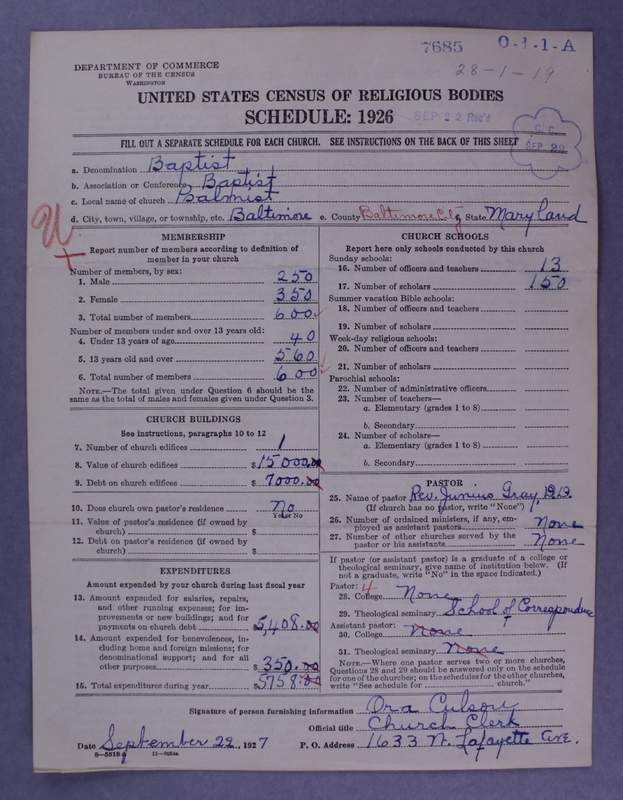 7685 O-1-1-A
28-1-19
DEPARTMENT OF COMMERCE
BUREAU OF THE CENSUS
WASHINGTON
UNITED STATES CENSUS OF RELIGIOUS BODIES
SCHEDULE: 1926
SEP 22 Rec'd
FILL OUT A SEPARATE SCHEDULE FOR EACH CHURCH. SEE INSTRUCTIONS ON THE BACK OF THIS SHEET
SEP 22
a. Denomination Baptist
b. Association or Conference Baptist
c. Local name of church Palmist
d. City, town, village, or township, etc. Baltimore e. County Baltimore City State Maryland
MEMBERSHIP
Report number of members according to definition of
member in your church
Number of members, by sex:
1. Male 250
2. Female 350
3. Total number of members 600
Number of members under and over 13 years old:
4. Under 13 years of age 40
5. 13 years old and over 560
6. Total number of members 600
NOTE.—The total given under Question 6 should be the
same as the total of males and females given under Question 3.
CHURCH BUILDINGS
See instructions, paragraphs 10 to 12
7. Number of church edifices 1
8. Value of church edifices $15000.00
9. Debt on church edifices $7000.00
10. Does church own pastor's residence No
Yes or No
11. Value of pastor's residence (if owned by
church) $
12. Debt on pastor's residence (if owned by
church) $
EXPENDITURES
Amount expended by your church during last fiscal year
13. Amount expended for salaries, repairs,
and other running expenses; for im-
provements or new buildings; and for
payments on church debt $5,408.00
14. Amount expended for benevolences, in-
cluding home and foreign missions; for
denominational support; and for all
other purposes $350.00
15. Total expenditures during year $5758.00
CHURCH SCHOOLS
Report here only schools conducted by this church
Sunday schools:
16. Number of officers and teachers 13
17. Number of scholars 150
Summer vacation Bible schools:
18. Number of officers and teachers
19. Number of scholars
Week-day religious schools:
20. Number of officers and teachers
21. Number of scholars
Parochial schools:
22. Number of administrative officers
23. Number of teachers—
a. Elementary (grades 1 to 8)
b. Secondary
24. Number of scholars—
a. Elementary (grades 1 to 8)
b. Secondary
PASTOR
25. Name of pastor Rev. Junius Gray, D.D.
(If church has no pastor, write "None")
26. Number of ordained ministers, if any, em-
ployed as assistant pastors None
27. Number of other churches served by the
pastor or his assistants None
If pastor (or assistant pastor) is a graduate of a college or
theological seminary, give name of institution below. (If
not a graduate, write "No" in the space indicated.)
Pastor: 4
28. College None
29. Theological seminary School of Correspondence
Assistant pastor:
30. College None
31. Theological seminary None
NOTE.—Where one pastor serves two or more churches,
Questions 28 and 29 should be answered only on the schedule
for one of the churches; on the schedules for the other churches,
write "See schedule for church."
Signature of person furnishing information Ora Culson
Official title Church Clerk
Date September 22, 1927 P. O. Address 1633 N. Lafayette Ave.
8—5518 a